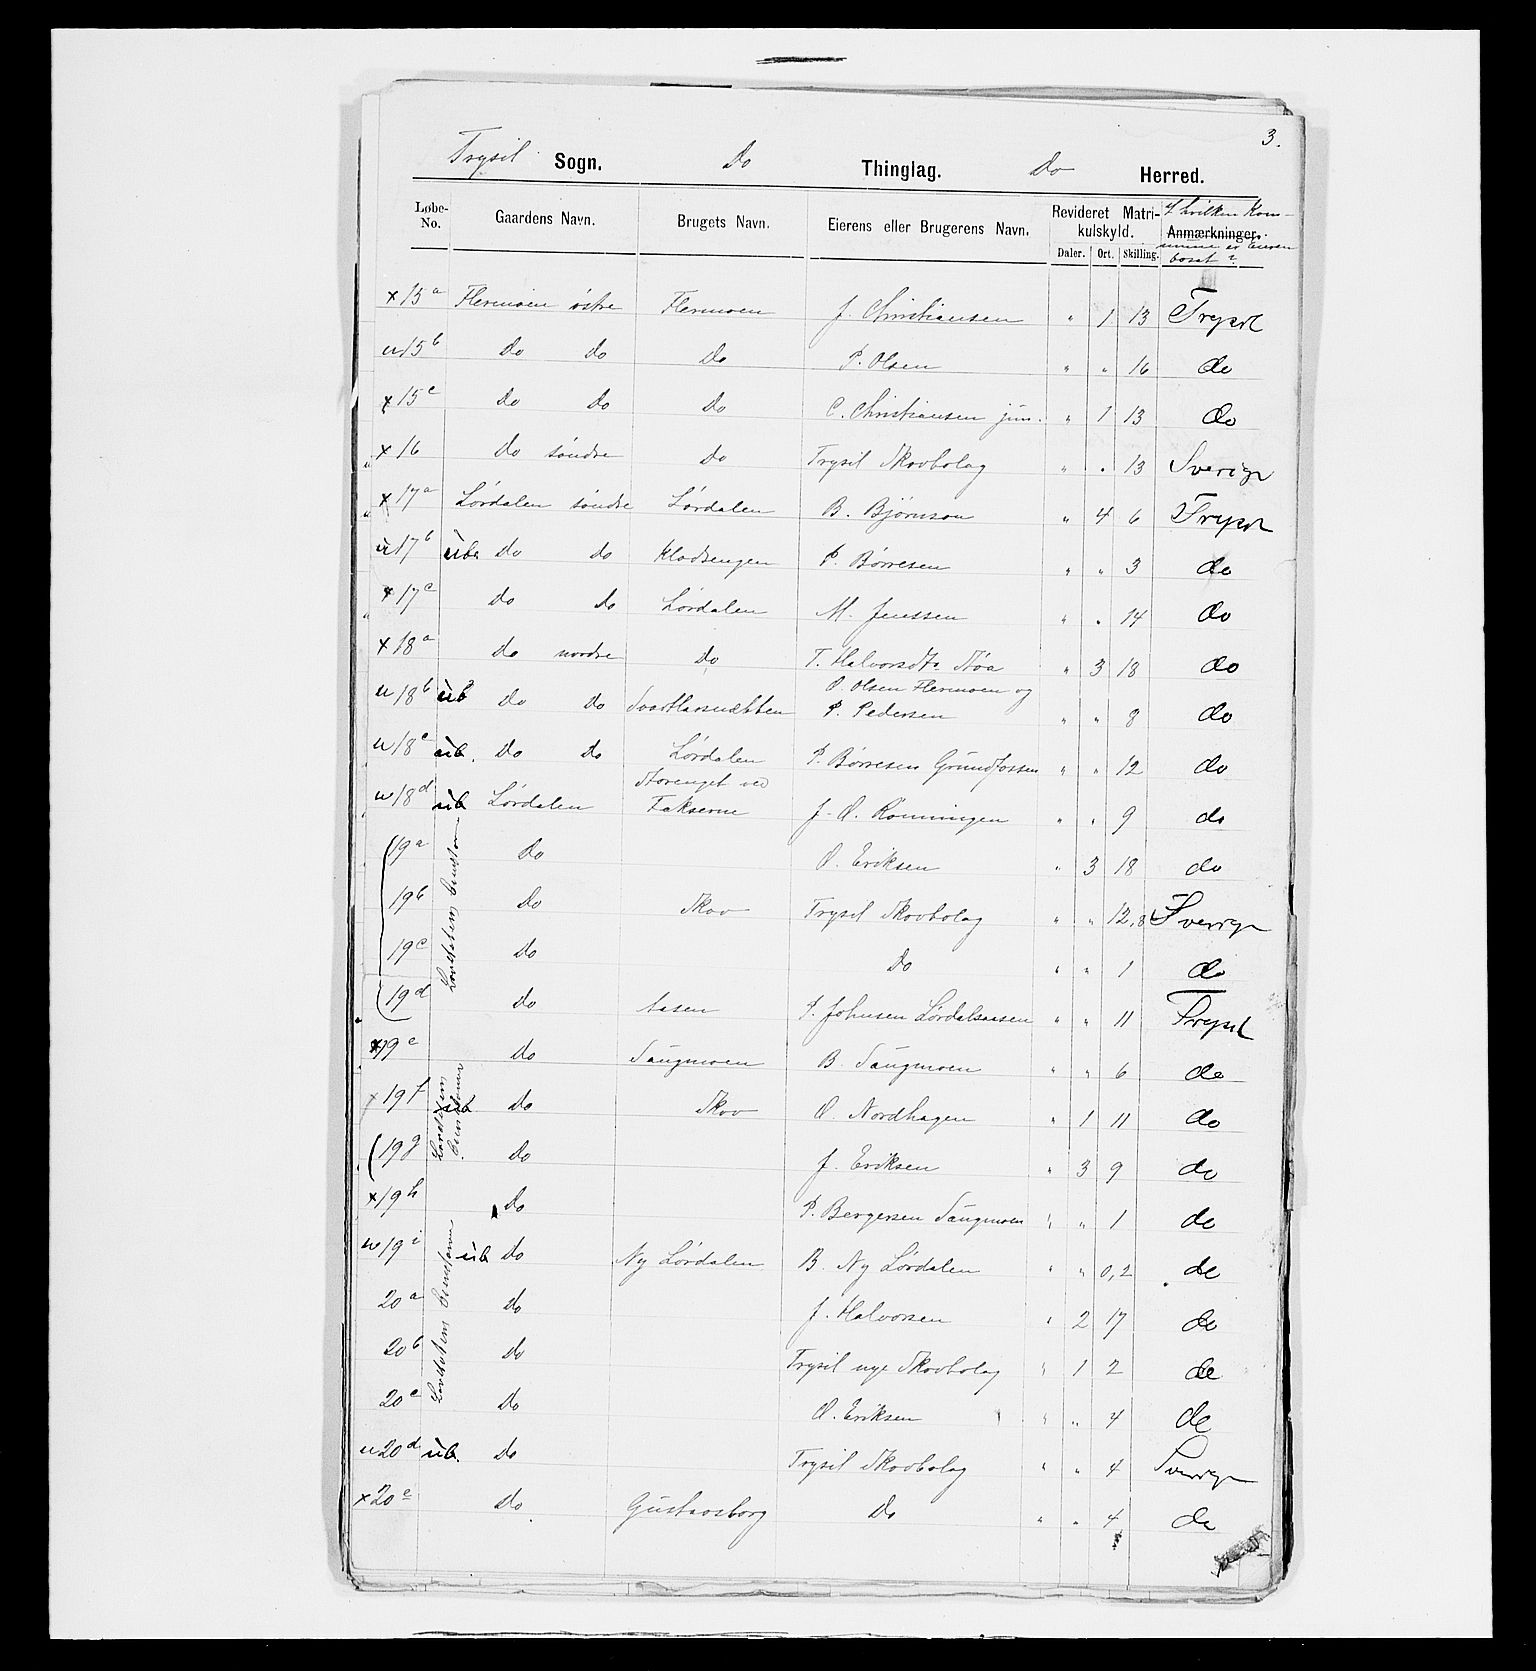 3.
Trysil Sogn. Do Thinglag. Do Herred.
Løbe-No. Gaardens Navn. Brugets Navn. Eierens eller Brugerens Navn. Revideret Matrikulskyld. Daler. Ort. Skilling. Anmærkninger. I hvilken Kommune er Eieren bosat?
x 15a Flermoen østre Flermoen J. Christiansen " 1 13 Trysil
u 15b Do Do Do P. Olsen " " 16 do
x 15c Do Do Do C. Christiansen jun. " 1 13 do
x 16 Do søndre Do Trysil Skovbolag " " 13 Sverige
x 17a Lørdalen søndre Lørdalen B. Bjørnson " 4 6 Trysil
u 17b ub Do Do Kladsengen P. Børresen " " 3 do
x 17c Do Do Lørdalen M. Jenssen " " 14 do
x 18a Do nordre Do T. Halvorsdtr Støa " 3 18 do
u 18b ub Do Do O. Olsen Flermoen og
P. Pedersen " " 8 do
u 18c ub. Do Do Lørdalen P. Børresen Grundfossen " " 12 do
u 18d ub Lørdalen Storenget ved
Fakserne J. O. Rønningen " " 9 do
19a Do O. Eriksen " 3 18 do
19b Do Skov Trysil Skovbolag " " 12,8 Sverige
19c Do Do " " 1 do
19d Do Aasen P. Johnsen Lørdalsaasen " " 11 Trysil
x 19e Do Saugmoen B. Saugmoen " " 6 do
x 19f ub Do Skov O. Nordhagen " 1 11 do
19g Do J. Eriksen " 3 9 do
x 19h Do P. Bergersen Saugmoen " " 1 do
u 19i ub Do Ny Lørdalen B. Ny Lørdalen " " 0,2 do
20a Do J. Halvorsen " 2 17 do
20b Do Trysil nye Skovbolag " 1 2 do
20c Do O. Eriksen " " 4 do
u 20d ub. Do Trysil Skovbolag " " 4 Sverige
x 20e Do Gustavsborg Do " " 4 do